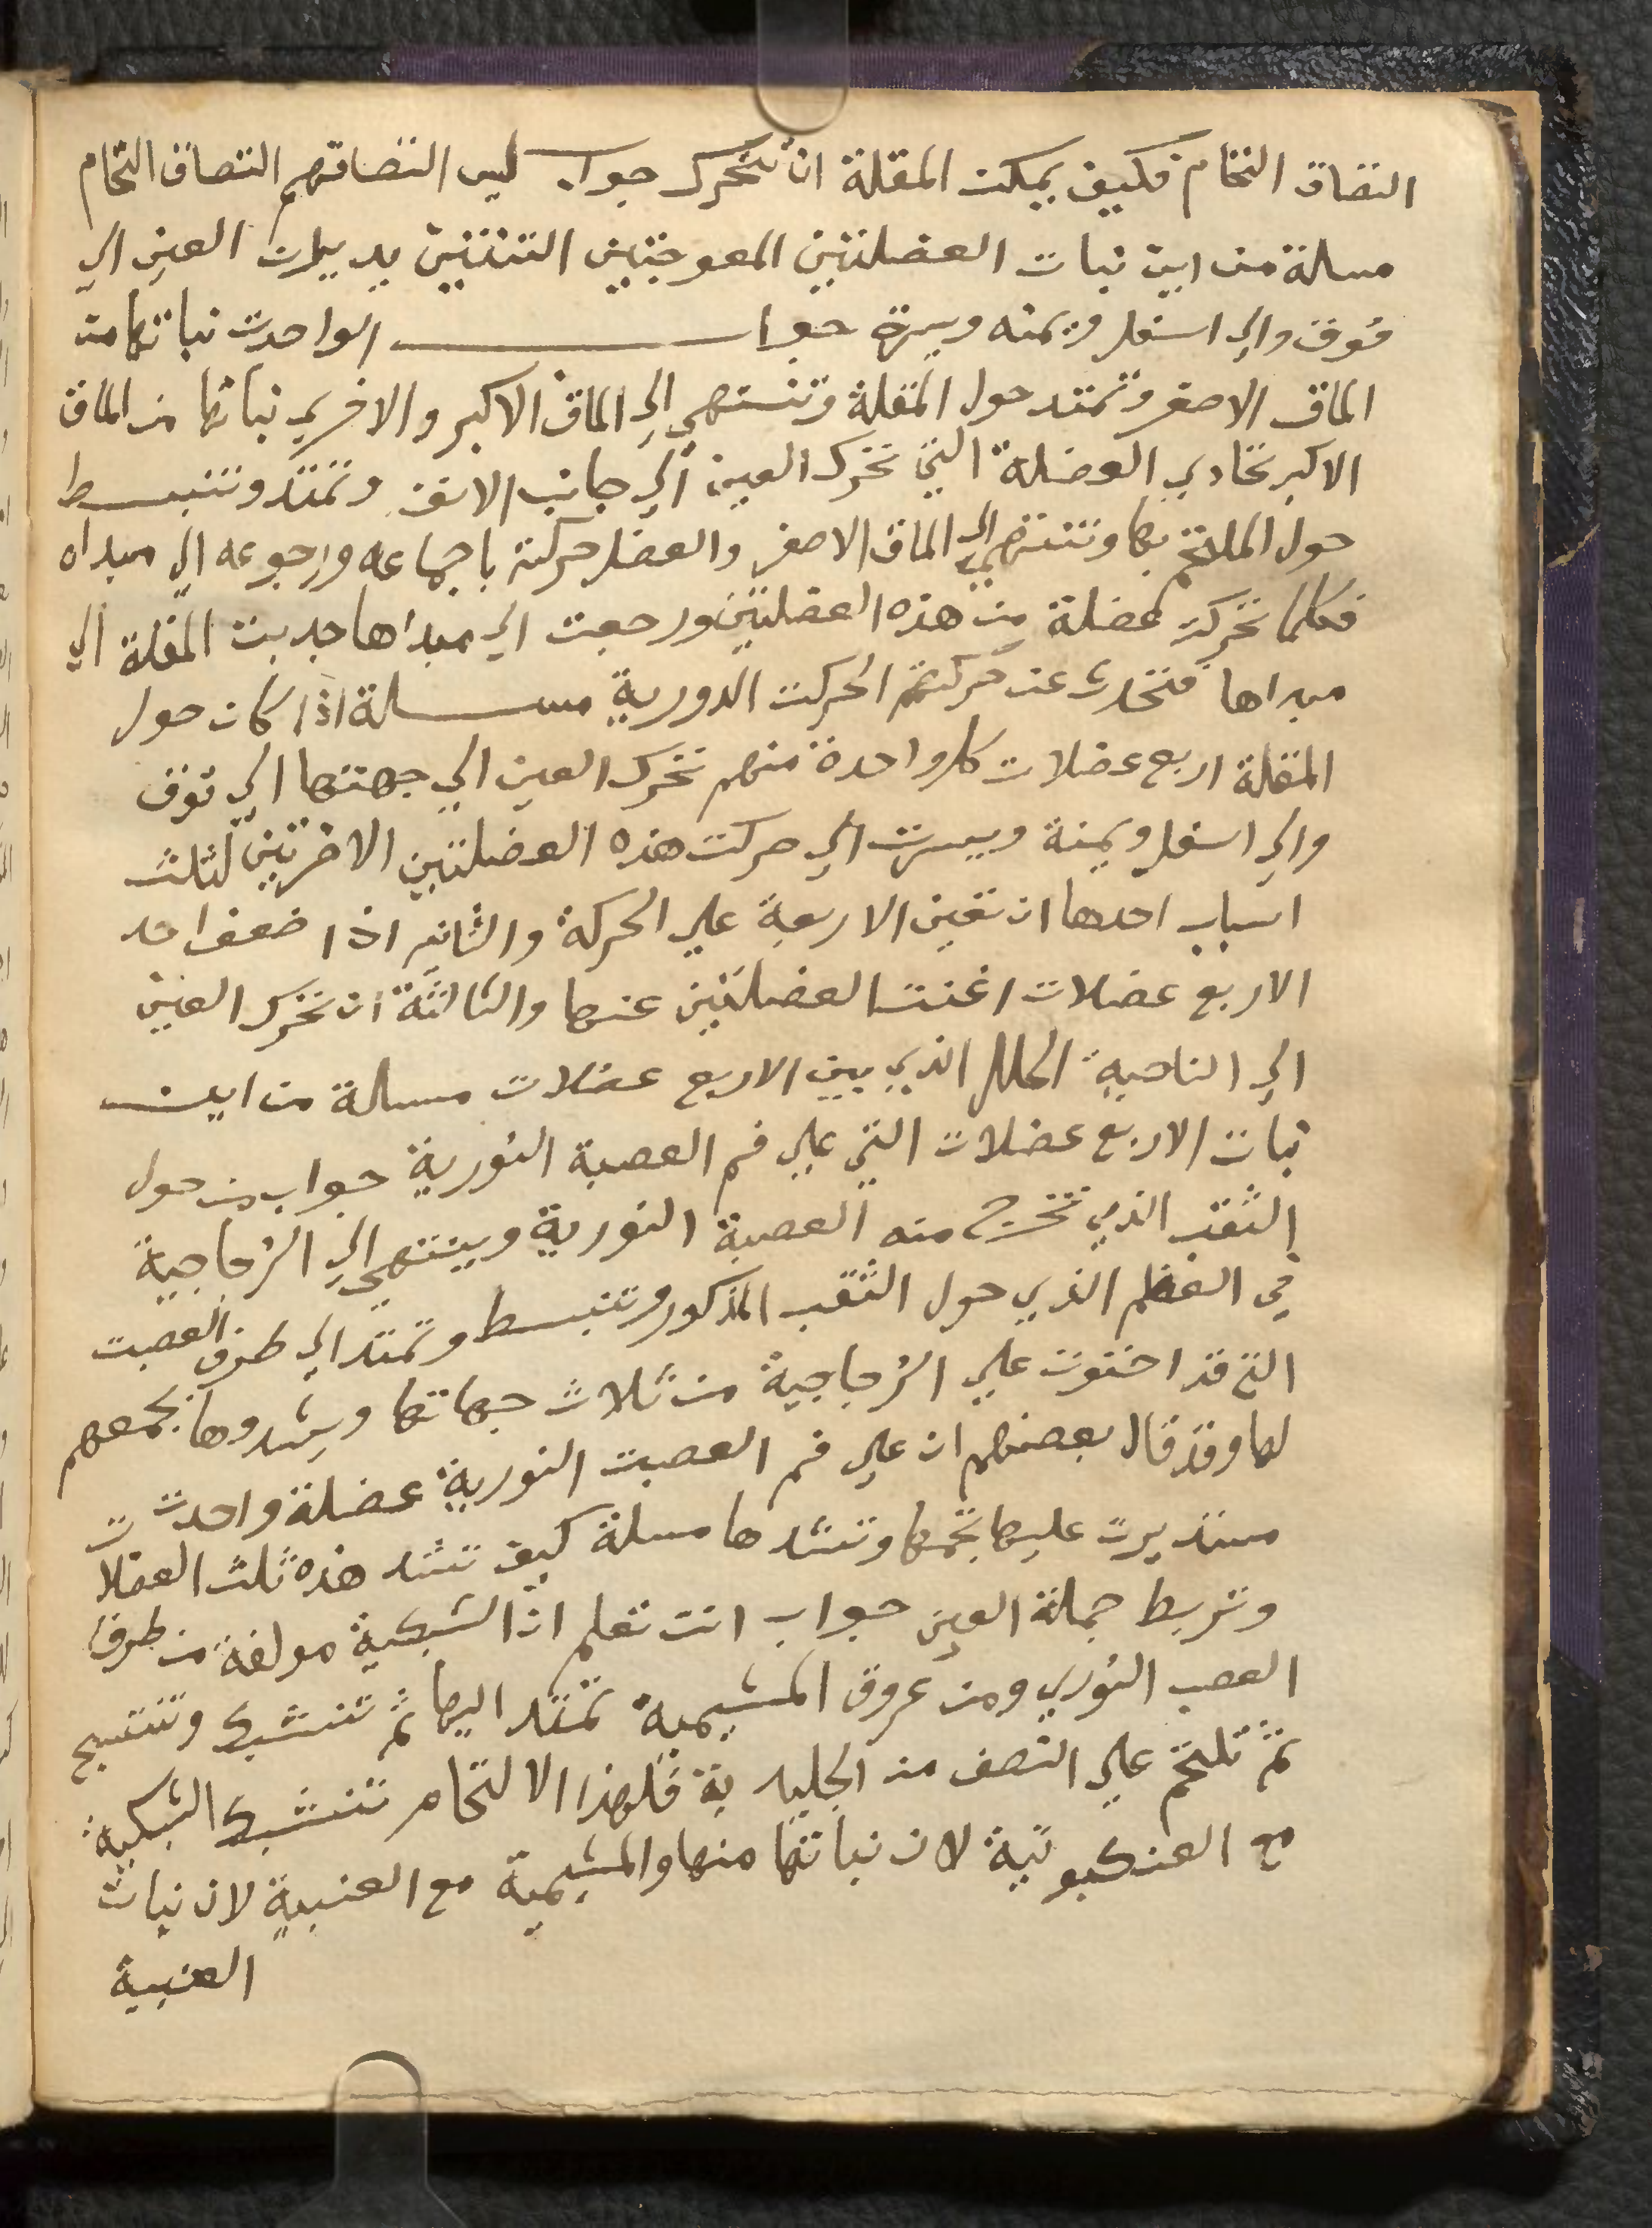 التصاق التحام فكيف يمكن المقلة ان تتحرك جواب ليس التصاقهم التصاق التحام
مسالة من اين نبات العضلتين المعوجتين التتنين يديران العين الي
فوق والي اسفل ويمنه ويسرة جواب الواحدت نباتها من
الماق الاصغر وتمتد حول المقلة وتنتهي الي الماق الاكبر والاخري نباتها من الماق
الاكبر تحادي العضلة التي تحرك العين الي جانب الانف وتمتد وتنبسط
حول الملتحم بها وتنتهي الي الماق الاصغر والعضل حركته باجماعه ورجوعه الي مبداه
فكلما تحركت عضلة من هذه العضلتين ورجعت الي مبداها جدبت المقلة الي
مبداها فتحدث عن حركتهم الحركت الدورية مسلة اذا كان حول
المقلة اربع عضلات كل واحدة منهم تحرك العين الي جهتها الي فوق
والي اسفل ويمنة ويسرت الي حركت هذه العضلتين الاخرتين لثلث
اسباب احدها ان تعين الاربعة علي الحركة والثاني اذا ضعف احد
الاربع عضلات اغنت العضلتين عنها والثالثة ان تحرك العين
الي الناحية الخلل الذي بين الاربع عضلات مسالة من اين
نبات الاربع عضلات التي علي فم العصبة النورية جواب من حول
الثقب الذي تخرج منه العصبة النورية وينتهي الي الزجاجية
في العظم الذي حول الثقب المذكور وتنبسط وتمتد الي طرف العصبت
التي قد احتوت علي الزجاجية من ثلاث جهاتها ويشدوها بجمعهم
لها وقد قال بعضهم ان علي فم العصبت النورية عضلة واحدت
مستديرت عليها تجمها وتشدها مسلة كيف تشد هذه ثلث العضلات
وتربط جملة العين جواب انت تعلم ان الشبكية مولفة من طرف
العصب النوري ومن عروق المشيمية تمتد اليها ثم تتشبك وتنتسج
ثم تلتحم علي النصف من الجليدية فلهذا الالتحام تتشبك الشبكية
مع العنكبوتية لان نباتها منها والمشيمية مع العنبية لان نبات
العنبية